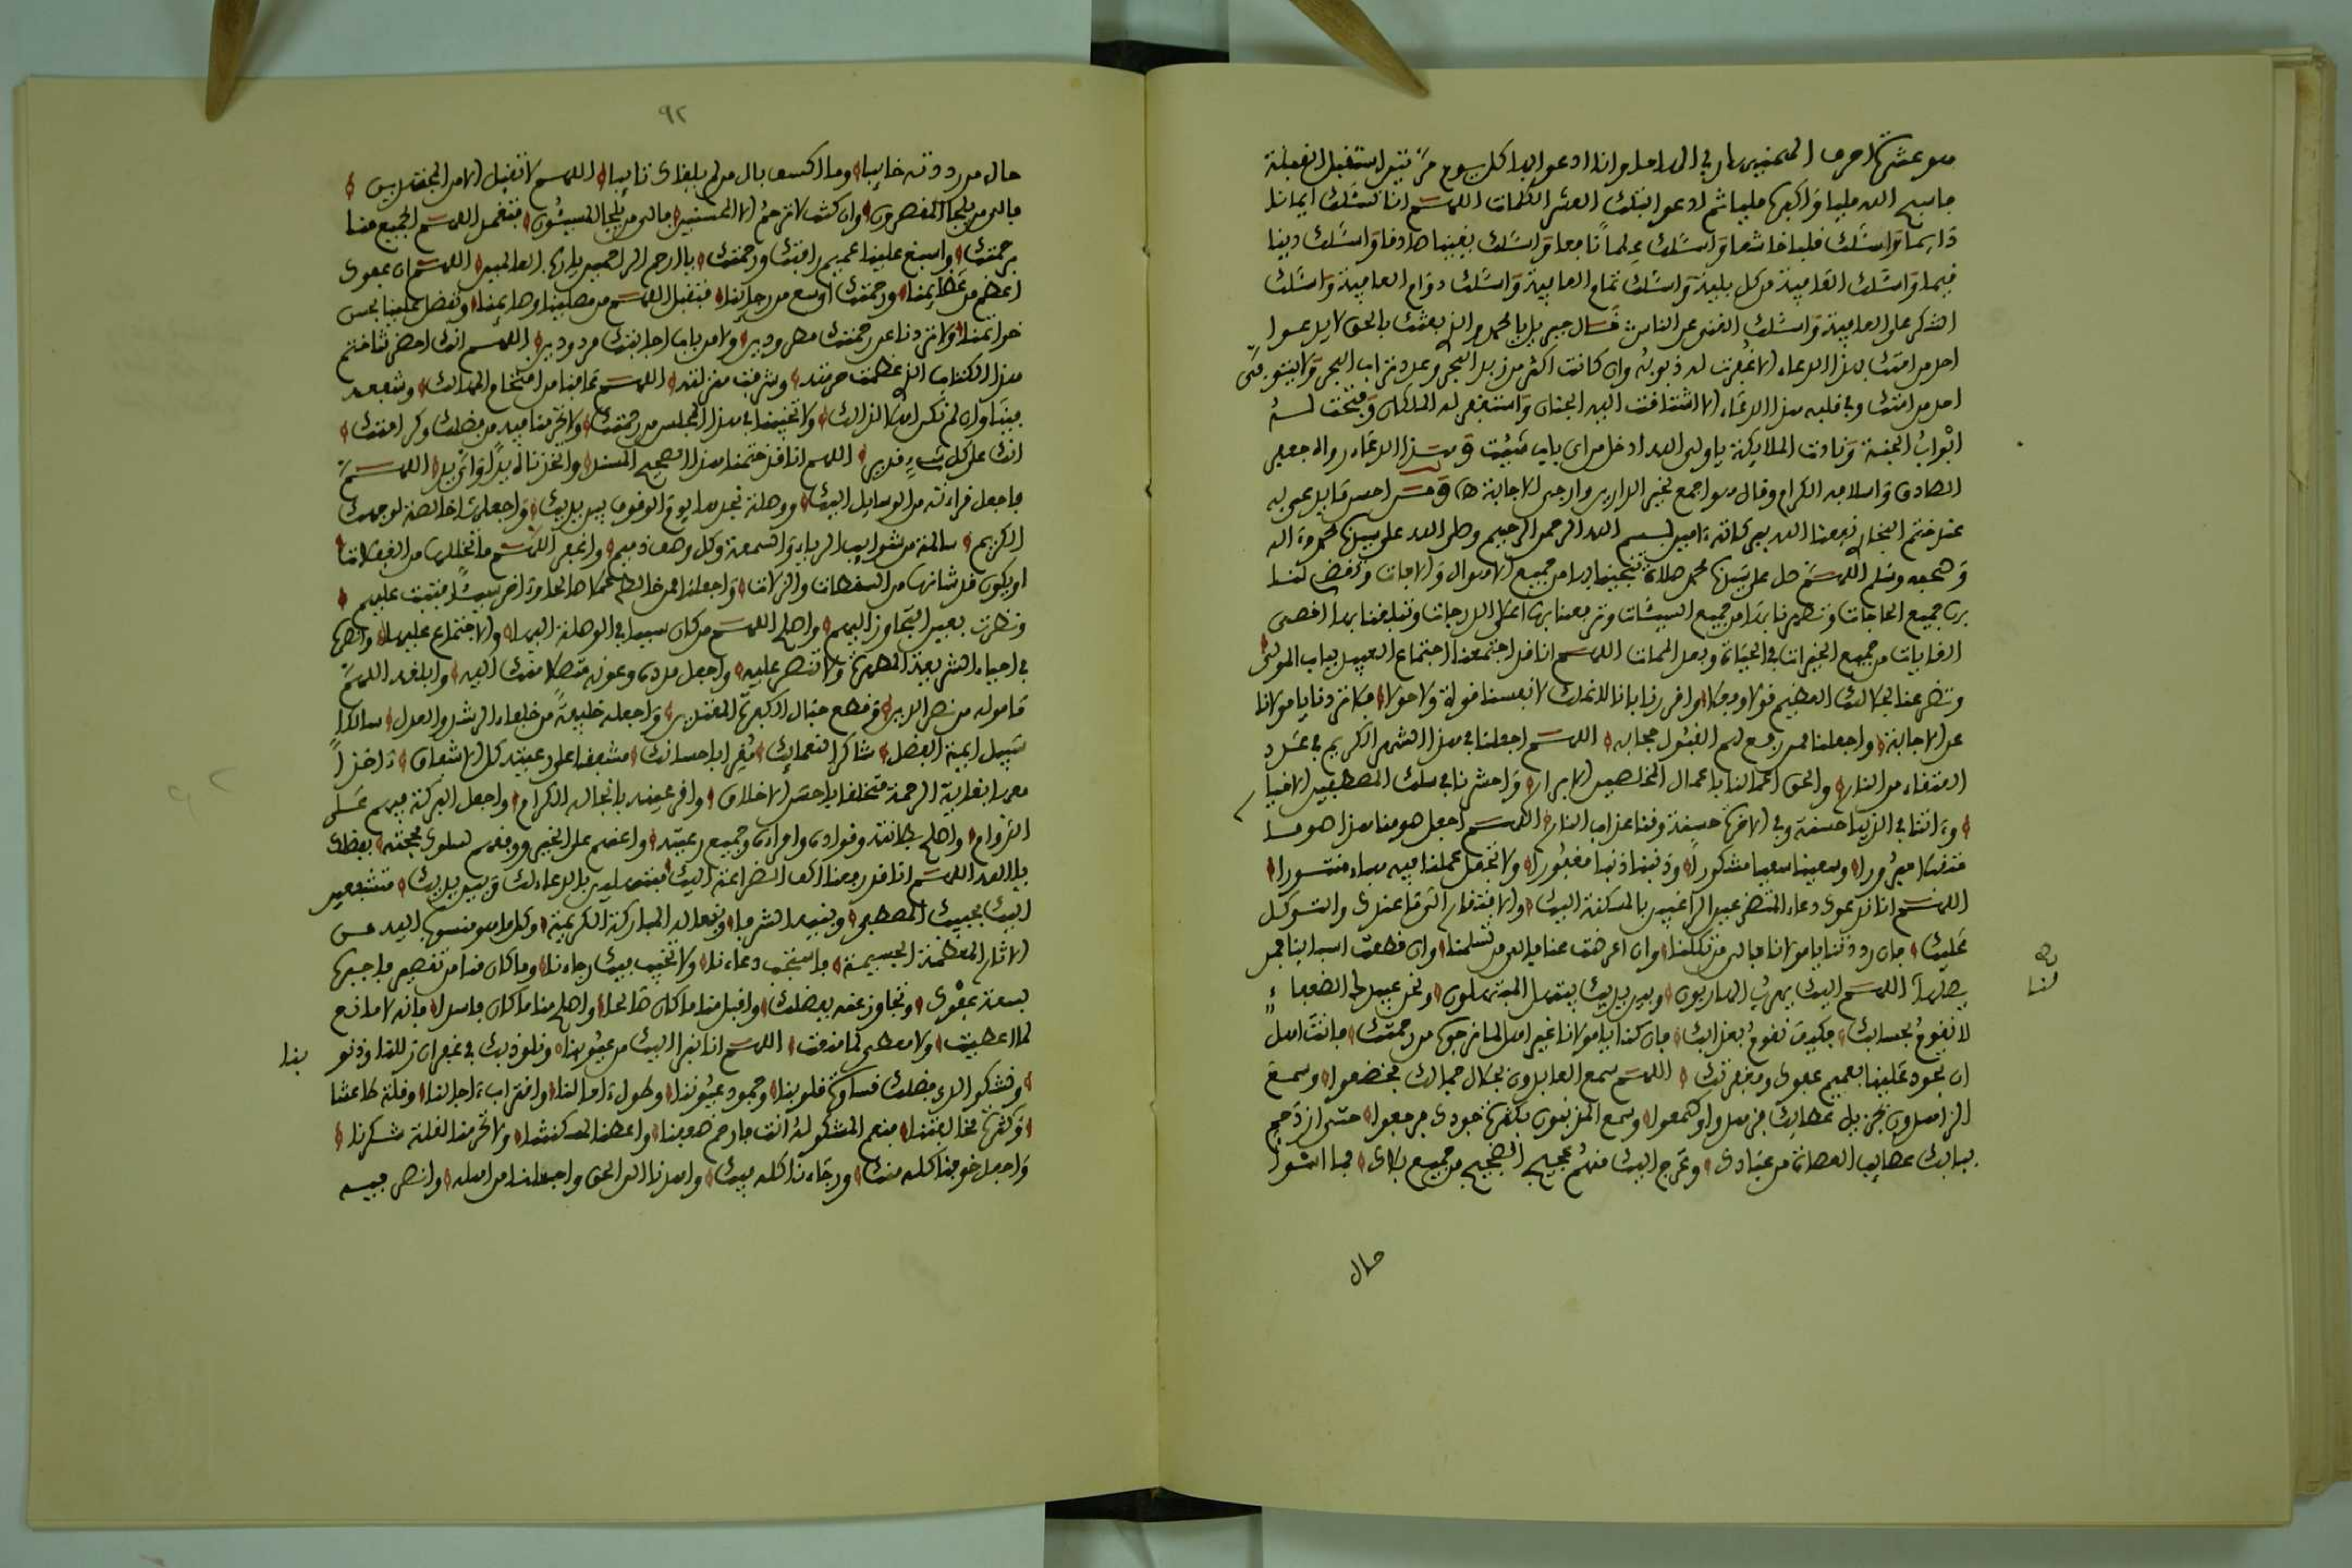 فاسبح الله مليا واكبره مليا ثم ادعو بتلك العشر الكلمات اللهم انا نسئلك ايمانا
دايما واسئلك قلبا خاشعا واسئلك علما نافعا واسئلك يقينا صادقا واسئلك دينا
قيما واسئلك العافية من كل بلية واسئلك تمام العافية واسئلك دوام العافية واسئلك
الشكر على العافية واسئلك الغنى عن الناس قال جبريل يا محمد والذى بعثك بالحق لا يدعوا
احد من امتك بهذا الدعاء الا غفرت له ذنوبه وان كانت اكثر من زبد البحر وعدد تراب
احد من امتك وفي قلبه هذا الدعاء الا اشتاقت اليه الجنان واستغفر له الملكان وفتحت له
ابواب الجنة ونادت الملايكة يا ولى الله ادخل من اى باب شئيت وهذا الدعاء رواه جعفر
الصادق واسلافه الكرام وقال هو اجمع لخير الدارين وارجى الاجابة ومن احسن ما يدعى به
عند ختم البخارى نفعنا الله ببركاته امين بسم الله الرحمن الرحيم وصلى الله على سيدنا محمد وءاله
وصحبه وسلم اللهم صل على سيدنا محمد صلاة تنجينا بها من جميع الاهوال والافات وتقضى لنا
بها جميع الحاجات وتطهرنا بها من جميع السيئات وترفعنا بها اعلى الدرجات وتبلغنا بها اقصى
الغايات من جميع الخيرات في الحياة وبعد الممات اللهم انا قد اجتمعنا اجتماع العبيد بباب المولى
وتضرعنا لجلالك العظيم قولا وفعلا واقررنا بانا لا نملك لانفسنا قوة ولا حولا فلا تردنا يا مولانا
عن الاجابة واجعلنا ممن رفع لهم القبول حجابه اللهم اجعلنا في هذا الشهر الكريم في عدد
العتقاء من النار والحق اعمالنا باعمال المخلصين الابرار واحشرنا في سلك المصطفين الاخيار
وءاتنا في الدنيا حسنة وفي الاخرة حسنة وقنا عذاب النار اللهم اجعل صومنا هذا صوما
متقبلا مبرورا وسعينا سعيا مشكورا وذنبنا ذنبا مغفورا ولا تجعل عملنا فيه هباء منثورا
اللهم انا ندعوك دعاء المتضرعين الراغبين بالمسكنة اليك والافتقار الى ما عندك والتوكل
عليك فان رددتنا يا مولانا فالى من تكلنا وان اعرضت عنا فالى من تسلمنا وان قطعت اسبابنا فمن
يصلها اللهم اليك يهرب الهاربون وبين يديك يتوسل المتوسلون ونحن عبيدك الضعفاء
لنا
لا نقوم بحسابك فكيف نقوم بعذابك فان كنا يا مولانا غير اهل لما نرجوه من رحمتك فانت اهل
ان تعود علينا بعميم عفوك ومغفرتك اللهم سمع العابدون بجلال جمالك فخضعوا وسمع
الزاهدون بجزيل عطايك فزهدوا وسمع المذنبون بكثرة جودك فرجعوا حتى ازدحم
ببابك عصايب العصاة من عبادك وعج اليك منهم عجيج الضجيج من جميع بلادك فما اسوا
حال
٩٢
حال من رددته خايبا وما اكسف بال من لم يلفاك تايبا اللهم لا تقبل الا من المجتهدين
فالى من يلجا المقصرون وان كنت لا ترحم الا المحسنين فالى من يلجا المسيئون فتغمد اللهم الجميع منا
برحمتك واسبغ علينا عميم رافتك ورحمتك يا ارحم الراحمين يا رب العالمين اللهم ان عفوك
اعظم من عظايمنا ورحمتك اوسع من رجاينا فتقبل اللهم من مصلينا وصايمنا وتفضل علينا بحسن
خواتمنا ولا تردنا عن رحمتك مطرودين ولا من باب اجابتك مردودين اللهم انك احضرتنا ختم
هذا الكتاب الذى عظمت حرمته وشرفت منزلته اللهم
فينا وان لم نكن اهلا لذالك ولا تخيبنا في هذا المجلس من رحمتك ولا تحرمنا فيه من فضلك وكرامتك
انك على كل شىء قدير اللهم انا قد ختمنا هذا الصحيح المسند
فاجعل قراءته من الوسايل اليك ووصلة نجدها يوم الوقوف بين يديك واجعلها خالصة لوجهك
الكريم سالمة من شوايب الرياء والسمعة وكل وصف ذميم واغفر اللهم ما تخللها من الغفلات
او يكون قد شانها من السقطات والزلات واجعلنا ممن خالط عملا صالحا وءاخر سيئا فتبت عليهم
ونظرت بعين التجاوز اليهم واصلح اللهم من كان سببا في الوصلة اليها والاجتماع عليها وانصره
في احياء الشريعة المطهرة ولا تنصر عليه واجعل مددك وعونه متصلا منك اليه وابلغه اللهم
مامونه من نصر الدين وقطع حبال الكفرة المعتدين واجعله خليفة من خلفاء الرشد والعدل سالكا
سبيل ايمة الفضل شاكرا لنعمايك مقرا باحسانك مشفقا على رعيته كل الاشفاق ءاخذا
معها بغاية الرحمة متخلقا باحسن الاخلاق واقر عينه بانجاله الكرام واجعل البركة فيهم على
الدوام واصلح بطانته وقواده وامراءه وجميع رعيته واعنهم على الخير ووفقهم لسلوك محجته بفضلك
يا الله اللهم انا قد رفعنا اكف الضراعة اليك متوسلين بالدعاء لك وبين يديك متشفعين
اليك بحبيبك المصطفى وبنيه الشرفا وبفعاله المباركة الكريمة وكل ما هو منسوب اليه من
الاثار المعظمة الجسيمة فاستجب دعاءنا ولا تخيب فيك رجاءنا وما كان منا من تقصير فاجبره
بسعة عفوك وتجاوز عنه بفضلك واقبل منا ما كان صالحا واصلح منا ما كان فاسدا فانه لا مانع
لما اعطيت ولا معطى لما منعت اللهم انا نبرا اليك من عيوبنا ونلوذ بك في غفران زللنا وذنو
بنا
ونشكو الى فضلك قساوة قلوبنا وجمود عيوننا وطول ءامالنا واقتراب ءاجالنا وقلة طاعتنا
وكثرة مخالفتنا فنعم المشكو له انت فارحم ضعفنا واعطنا لمسكنتنا ولا تحرمنا لقلة شكرنا
واجعل خوفنا كله منك ورجاءنا كله فيك واهدنا الى الحق واجعلنا من اهله وانصر فيه